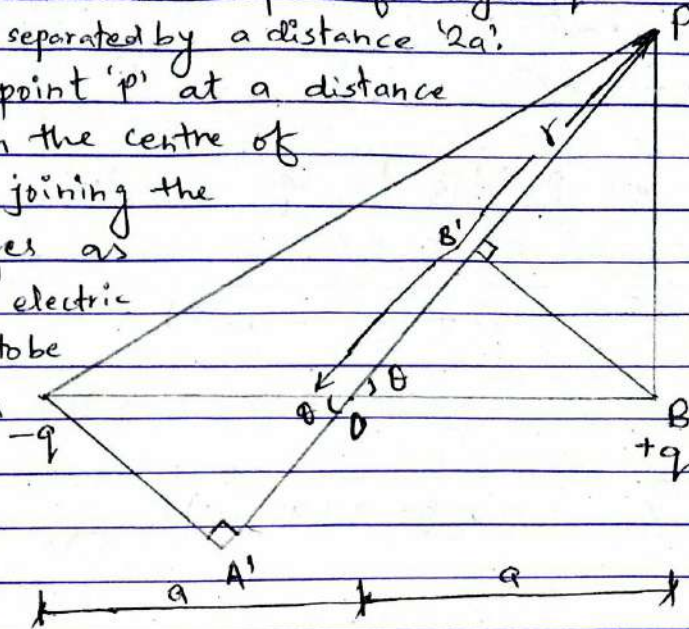 separated by a distance '2a'.
point 'p' at a distance
the centre of
joining the
as
electric
to be
P
r
B'
θ
θ
O
-q
B
+q
A'
a
a